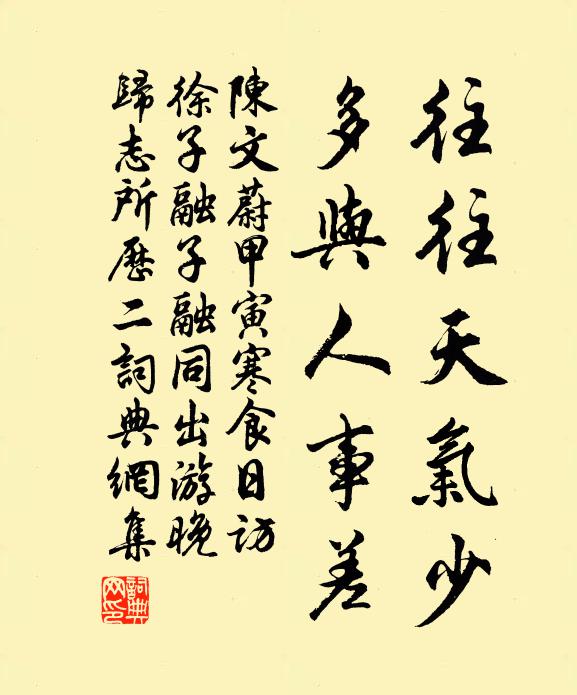 往往天氣少
多與人事差
陳文蔚甲寅寒食日訪
徐子融子融同出游晚
歸志所歷二詞典網集
詞典網印